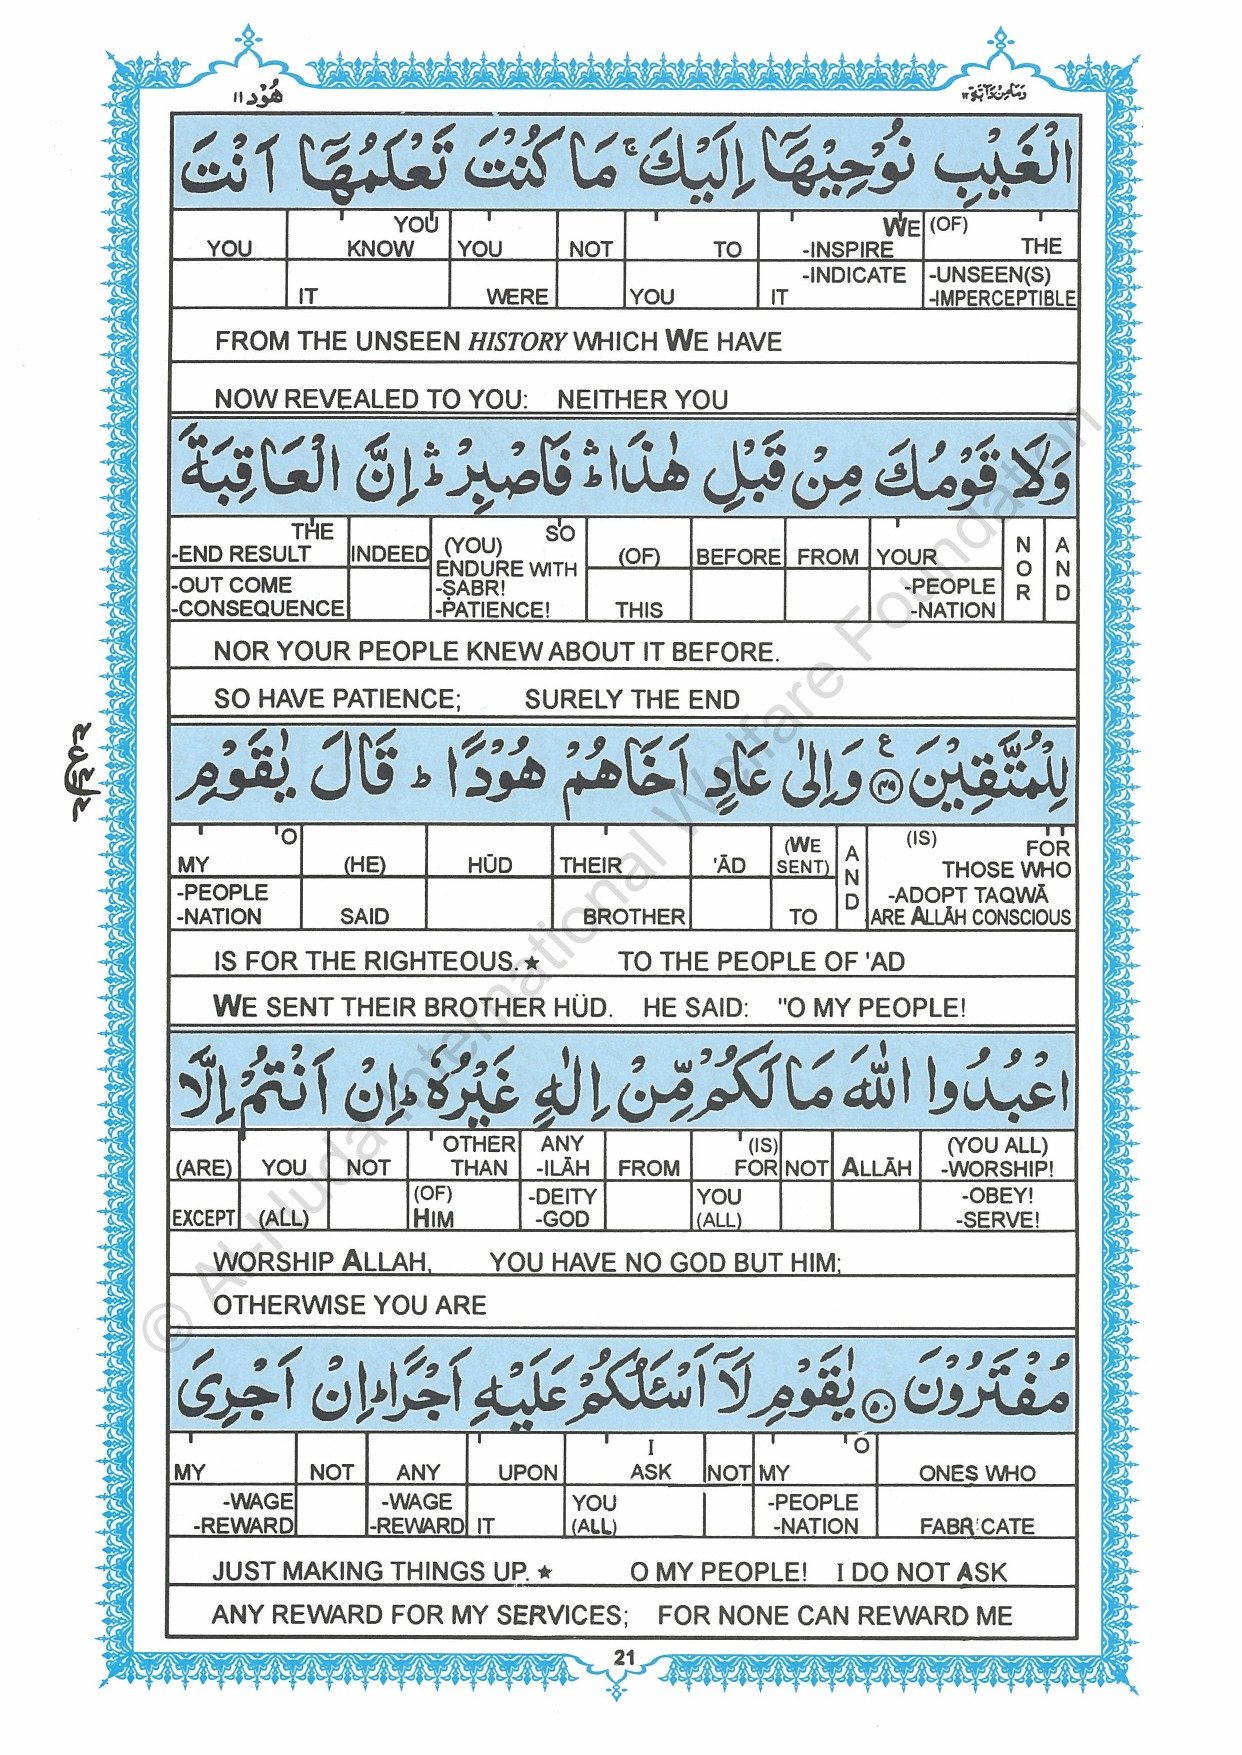 هُوْد ۱۱
وَمَا مِنْ دَآبَّةٍ ۱۲
الْغَيْبِ نُوْحِيْهَآ اِلَيْكَ ۚ مَا كُنْتَ تَعْلَمُهَآ اَنْتَ
YOU YOU KNOW YOU NOT TO WE -INSPIRE (OF) THE
IT WERE YOU IT -INDICATE -UNSEEN(S) -IMPERCEPTIBLE
FROM THE UNSEEN HISTORY WHICH WE HAVE
NOW REVEALED TO YOU: NEITHER YOU
وَلَا قَوْمُكَ مِنْ قَبْلِ هٰذَا ؕ فَاصْبِرْ ؕ اِنَّ الْعَاقِبَةَ
THE -END RESULT INDEED SO (YOU) ENDURE WITH (OF) BEFORE FROM YOUR NOR AND
-OUT COME -CONSEQUENCE -ṢABR! -PATIENCE! THIS -PEOPLE -NATION
NOR YOUR PEOPLE KNEW ABOUT IT BEFORE.
SO HAVE PATIENCE; SURELY THE END
لِلْمُتَّقِيْنَ ۴۹ ع وَاِلٰى عَادٍ اَخَاهُمْ هُوْدًا ؕ قَالَ يٰقَوْمِ
MY O (HE) HŪD THEIR 'ĀD (WE SENT) AND (IS) FOR THOSE WHO
-PEOPLE -NATION SAID BROTHER TO -ADOPT TAQWĀ ARE ALLĀH CONSCIOUS
IS FOR THE RIGHTEOUS.★ TO THE PEOPLE OF 'AD
WE SENT THEIR BROTHER HÜD. HE SAID: "O MY PEOPLE!
اعْبُدُوا اللّٰهَ مَا لَكُمْ مِّنْ اِلٰهٍ غَيْرُهٗ ؕ اِنْ اَنْتُمْ اِلَّا
(ARE) YOU NOT OTHER THAN ANY -ILĀH FROM (IS) FOR NOT ALLĀH (YOU ALL) -WORSHIP!
EXCEPT (ALL) (OF) HIM -DEITY -GOD YOU (ALL) -OBEY! -SERVE!
WORSHIP ALLAH, YOU HAVE NO GOD BUT HIM;
OTHERWISE YOU ARE
مُفْتَرُوْنَ ۵۰ يٰقَوْمِ لَآ اَسْـَٔلُكُمْ عَلَيْهِ اَجْرًا ؕ اِنْ اَجْرِىَ
MY NOT ANY UPON I ASK NOT MY O ONES WHO
-WAGE -REWARD -WAGE -REWARD IT YOU (ALL) -PEOPLE -NATION FABRICATE
JUST MAKING THINGS UP.★ O MY PEOPLE! I DO NOT ASK
ANY REWARD FOR MY SERVICES; FOR NONE CAN REWARD ME
21
© Al-Huda International Welfare Foundation